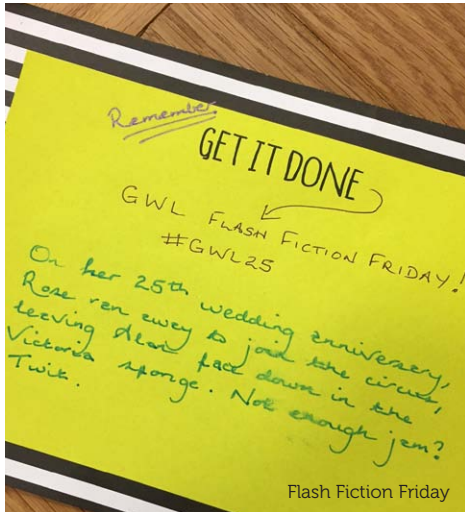 Remember
GET IT DONE
GWL FLASH FICTION FRIDAY!
#GWL25
On her 25th wedding anniversary,
Rose ran away to join the circus,
leaving Alan face down in the
Victoria sponge. Not enough jam?
Twit.
Flash Fiction Friday